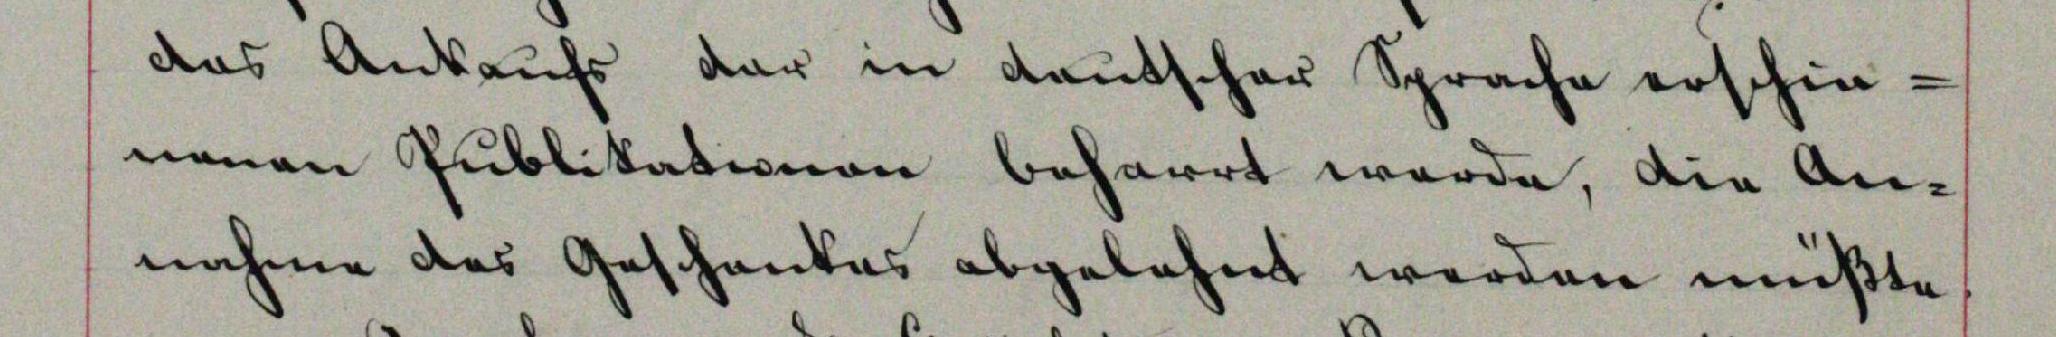 des Ankaufs der in deutscher Sprache erschie=
nenen Publikationen beharrt werde, die An=
nahme des Geschenkes abgelehnt werden müßte.